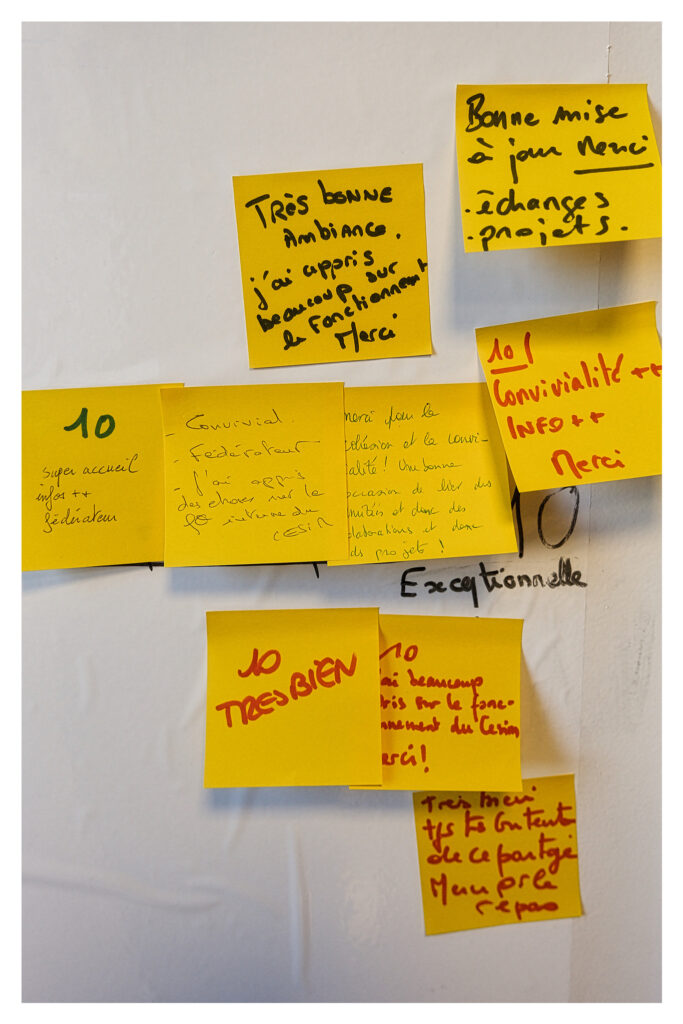 Bonne mise
à jour Merci
. échanges
. projets.
TRÈS bonne
Ambiance.
j'ai appris
beaucoup sur
le fonctionnement
Merci
10 !
Convivialité ++
INFO ++
Merci
10
super accueil
infos ++
fédérateur
- Convivial.
- Fédérateur
- J'ai appris
des choses sur le
interne du
CESIM
merci pour la
cohésion et la convi-
ialité ! Une bonne
occasion de lier des
amitiés et donc des
llaborations et donc
ds projets !
10
Exceptionnelle
10
TRES BIEN
10
'ai beaucoup
pris sur le fonc-
nnement du Cesim
erci !
Très bien
tjs très contente
de ce partage
Merci pr le
repas